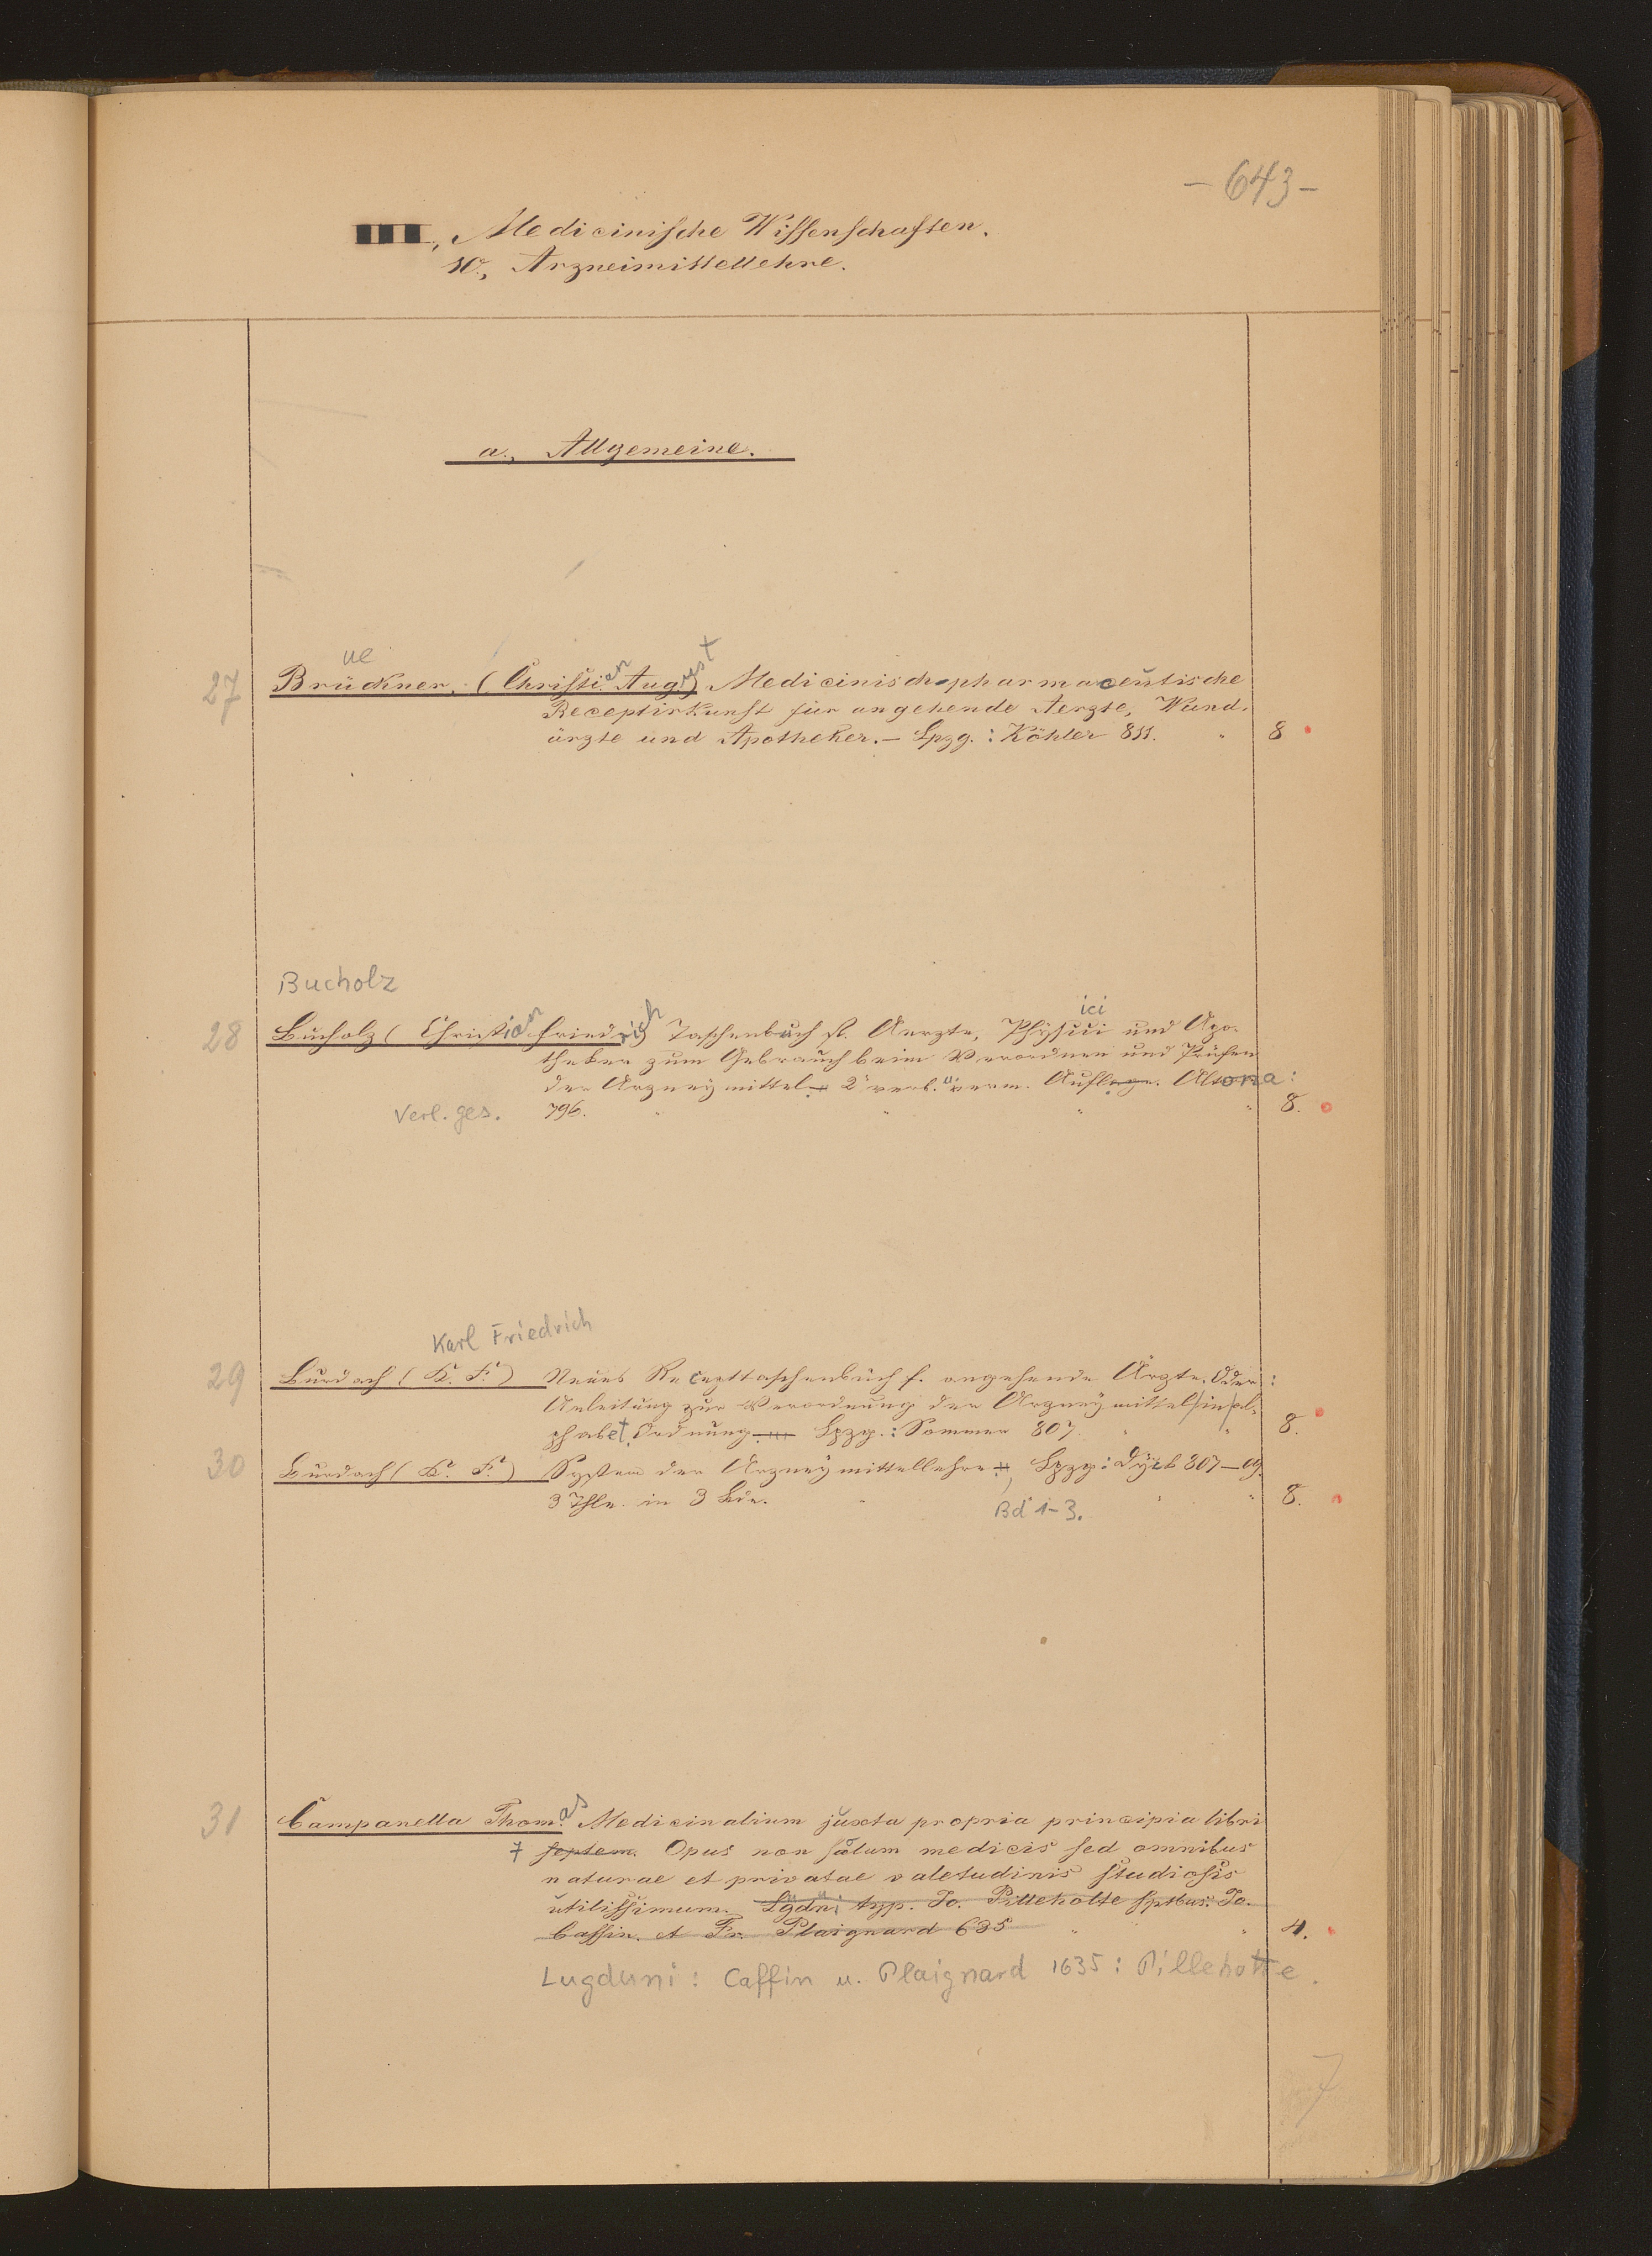 - 643 -
III., Medicinische Wissenschaften.
10., Arzneimittellehre.
a., Allgemeine.
ue
27 Brückner, (Christian August) Medicinisch-pharmaceutische
Receptirkunst für angehende Aerzte, Wund-
ärzte und Apotheker. – Lpzg.: Köhler 811. " 8
Bucholz
ici
28 Bucholz (Christian Friedrich) Taschenbuch f. Aerzte, Physici und Apo-
theker zum Gebrauch beim Verordnen und Prüfen
der Arzneymittel. 2e verb. u. verm. Auflage. Altona:
Verl. ges. 796. " " " " 8.
Karl Friedrich
29 Burdach (K. F.) Neues Recepttaschenbuch f. angehende Ärzte. Oder:
Anleitung zur Verordnung der Arzneymittel/in/al-
phabet. Ordnung. Lpzg.: Sommer 807. " " 8.
30 Burdach (K. F.) System der Arzneymittellehre, Lpzg: Dyck 807–09.
3 Thle. in 3 Bde. " " " 8.
Bd 1-3.
31 Campanella Thomas Medicinalium juxta propria principia libri
7 septem. Opus non solum medicis sed omnibus
naturae et privatae valetudinis studiosis
utilissimum. Lgdni typ. Jo. Pillehotte sptbus. Jo.
Caffin. et Fr. Plaignard 635 " " 4.
Lugduni: Caffin u. Plaignard 1635: Pillehotte.
7